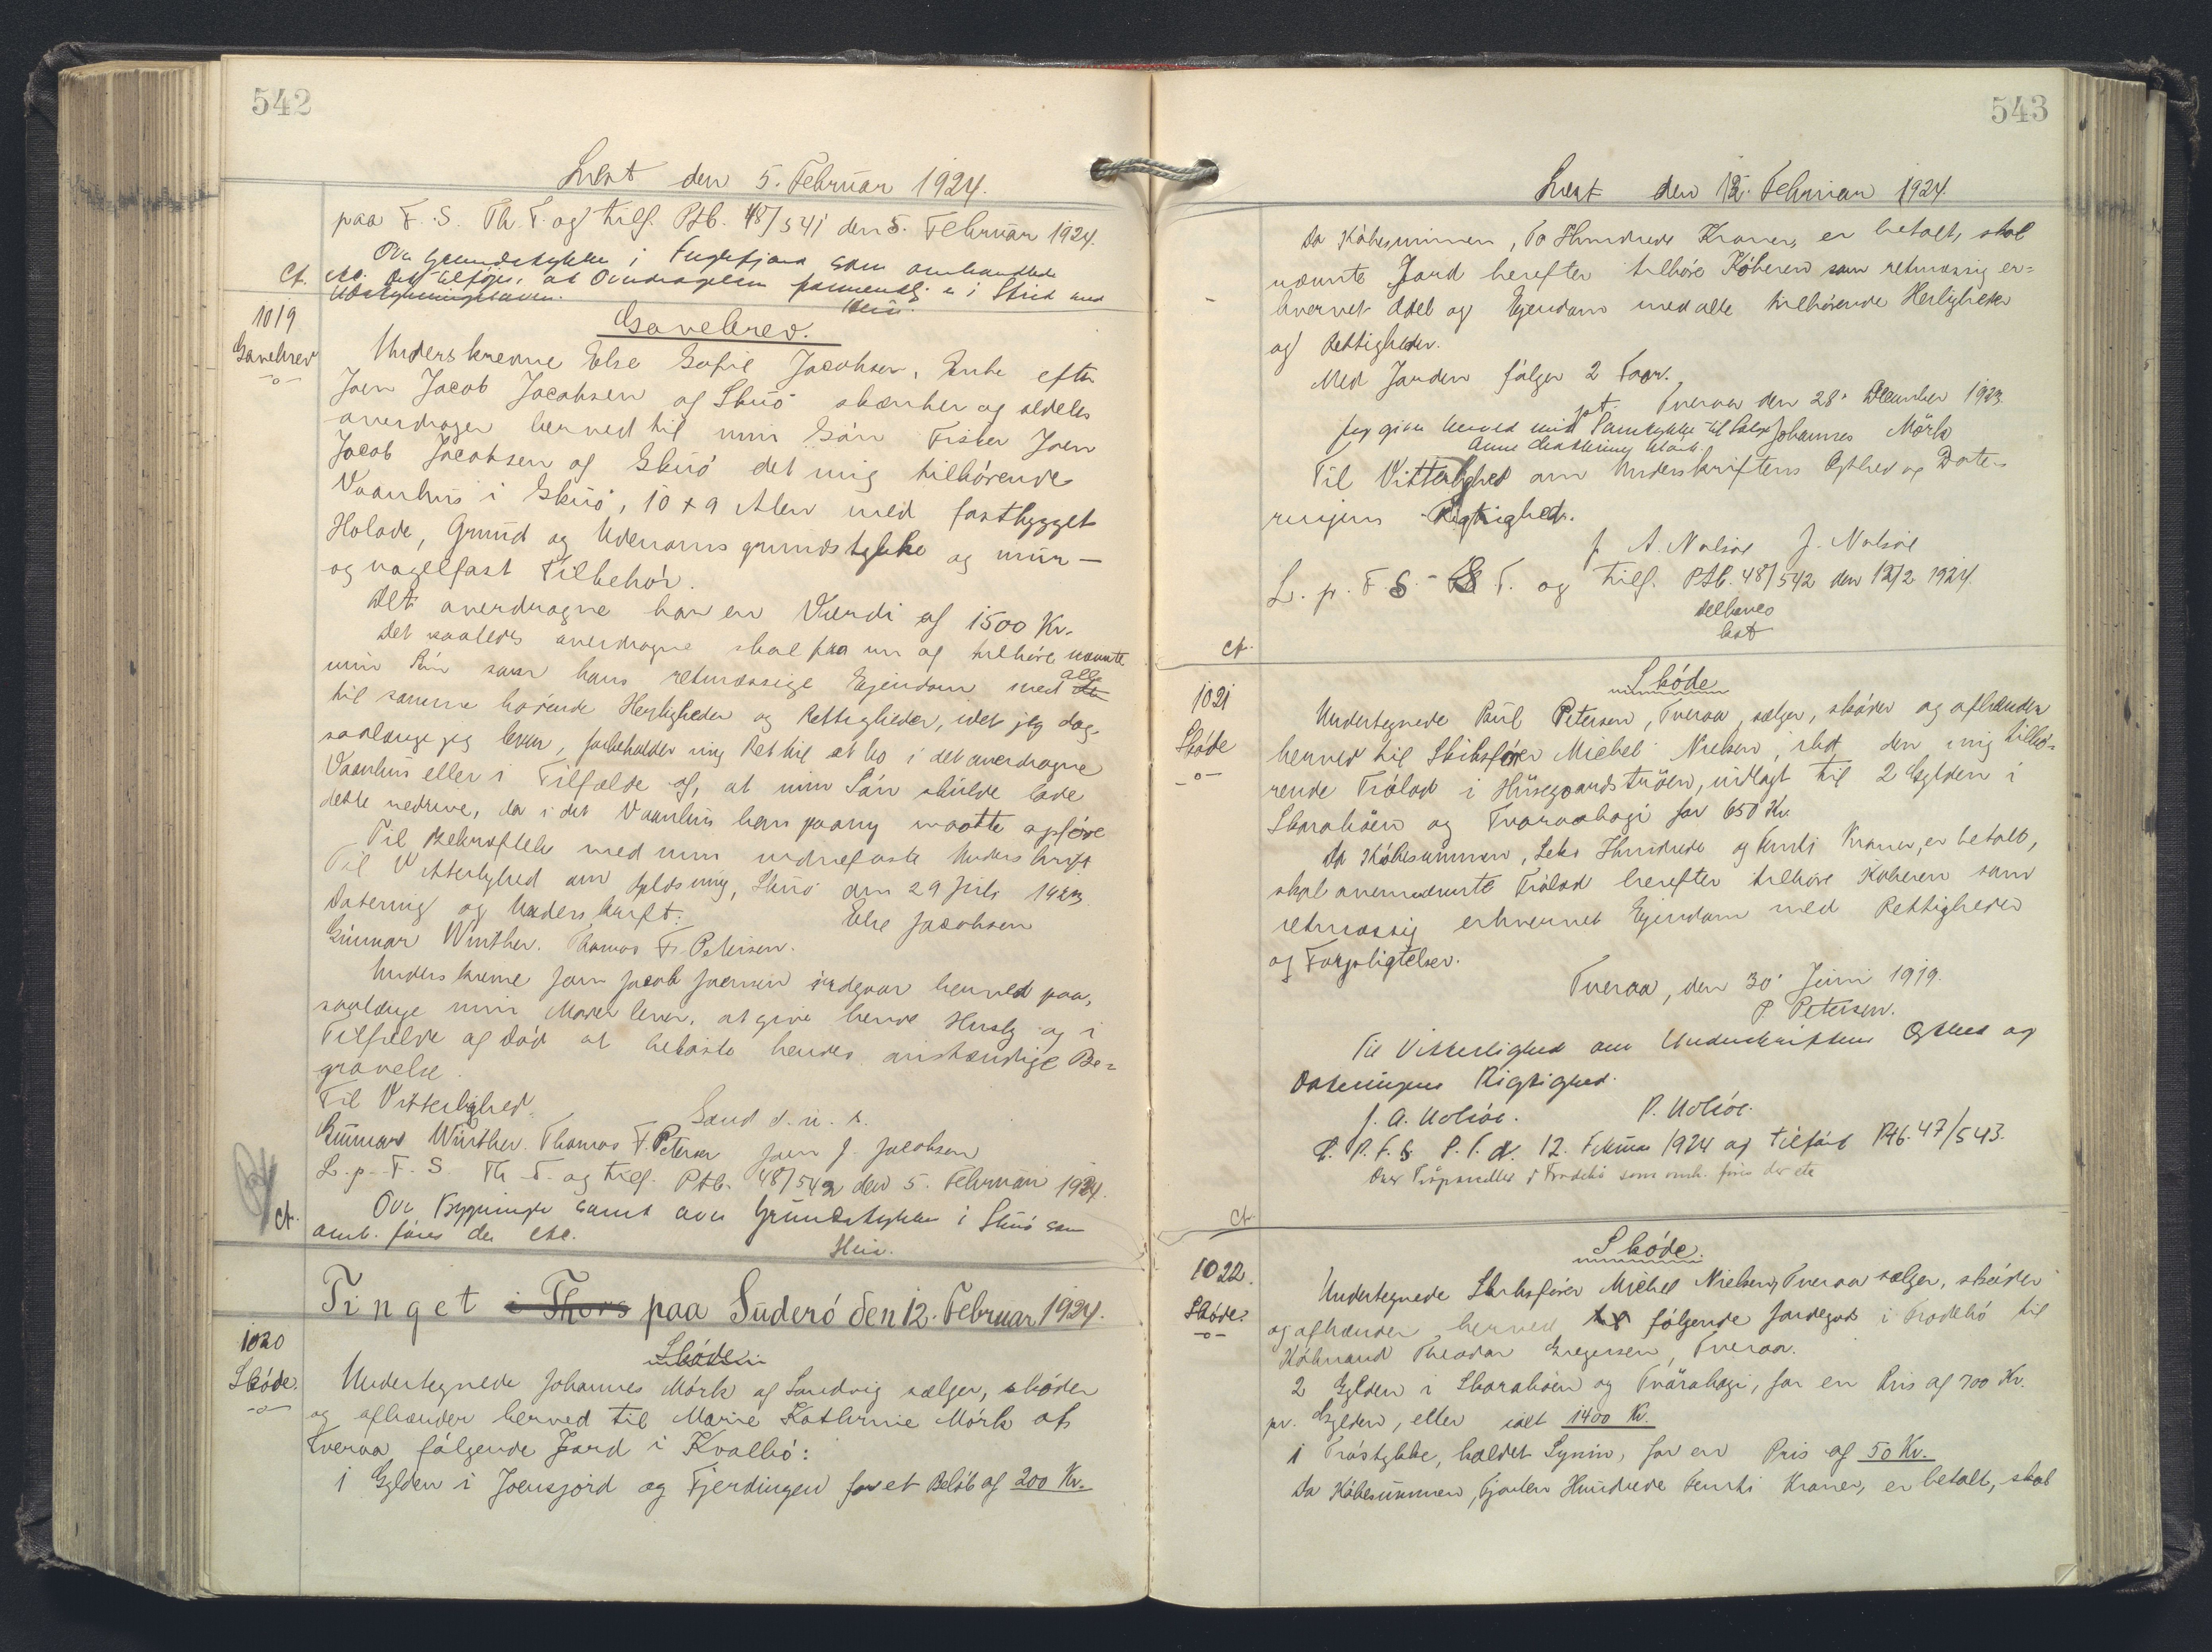 542
Læst den 5. Februar 1924.
paa F. S. Th. T. og tilf. Ptb. 48/541 den 5. Februar 1924.
Ove Grundstykke i Fuglefjord som omhandlede
Ct.
etc. Det tilføjes, at Overdragelsen formentlig er i Strid med
Udstykningsloven.
1019
Gavebrev
Gavebrev.
Underskrevne Else Sofie Jacobsen, Enke efter
Joen Jacob Jacobsen af Skuö skænker og aldeles
overdrager herved til min Sön Fisker Joen
Jacob Jacobsen af Skuö det mig tilhörende
Vaanhus i Skuö, 10 x 9 Alen med fastbygget
Hölade, Grund og Udenomsgrundstykke og mur-
og nagelfast Tilbehör.
Det overdragne har en Værdi af 1500 Kr.
Det saaledes overdragne skal fra nu af tilhöre nævnte
min Sön som hans retmæssige Ejendom med alle
til samme hörende Herligheder og Rettigheder, idet jeg dog,
saalænge jeg lever, forbeholder mig Ret til at bo i det overdragne
Vaanhus eller i Tilfælde af, at min Sön skulde lade
dette nedrive, da i det Vaanhus han paany maatte opföre
Til Bekræftelse med min vedhæftede Underskrift
Til Vitterlighed om Oplæsning, Skuö den 29 Juli 1923
Datering og Underskrift:
Else Jacobsen
Gunnar Winther. Thomas F. Petersen.
Underskrevne Joen Jacob Joensen indgaar herved paa,
saalænge min Moder lever, at give hende Husly og i
Tilfælde af Död at bekoste hendes anstændige Be-
gravelse.
Til Vitterlighed.
Sand d. u. s.
Gunnar Winther. Thomas F. Petersen Joen J. Jacobsen
L. p. F. S. Th. T. og tilf. Ptb. 48/542 den 5. Februari 1924.
Ove Bygninger samt over Grundstykke i Skuö som
Ct.
omh. föres der etc.
Tinget i Thors paa Suderö den 12. Februar 1924.
1020
Sköde.
Sköde
Undertegnede Johannes Mörk af Sandvig sælger, sköder
og afhænder herved til Marie Kathrine Mörk af
Tveraa følgende Jord i Kvalbö:
1 Gylden i Joensjord og Fjerdingen for et Belöb af 200 Kr.
543
Læst den 12. Februar 1924.
Da Köbesummen, To Hundrede Kroner, er betalt, skal
nævnte Jord herefter tilhöre Köberen som retmæssig er-
hvervet Odel og Ejendom med alle tilhörende Herligheder
og Rettigheder.
Med Jorden fölger 2 Faar.
pt. Tveraa den 28' December 1923.
Jeg giver herved mit Samtykke til Salget Johannes Mörk
Til Vitterlighed om Underskriftens Ægthed og Date-
ringens Rigtighed.
J. A. Nolsöe J. Nolsöe
L. p. F. S. S T. og tilf. Ptb. 48/542 den 12/2 1924.
Ct.
1021
Sköde
Sköde
Undertegnede Poul Petersen, Tveraa, sælger, sköder og afhænder
herved til Skibsförer Michel Nielsen, ibd. den mig tilhö-
rende Trölod i Husegaardströen, udlagt til 2 Gylden i
Skarahöen og Tvaraahagi for 650 Kr.
Da Köbesummen, Seks Hundrede og Femti Kroner, er betalt,
skal ovennævnte Trölod herefter tilhöre Köberen som
retmæssig erhvervet Ejendom med Rettigheder
og Forpligtelser.
Tveraa, den 30' Juni 1919.
P Petersen.
Til Vitterlighed om Underskriftens Ægthed og
Dateringens Rigtighed.
J. A. Nolsöe. P. Nolsöe.
L. P. F. S. S. T. d. 12. Februar 1924 og tilfört Ptb. 47/543.
Ct.
1022.
Sköde.
Sköde.
Undertegnede Skibsförer Michel Nielsen, Tveraa sælger, sköder
og afhænder herved følgende Jordegods i Frodebö til
Köbmand Theodor Gregersen, Tveraa.
2 Gylden i Skarahöen og Tvörahagi, for en Pris af 700 Kr.
pr. Gylden, eller ialt 1400 Kr.
1 Tröstykke, kaldet Synin, for en Pris af 50 Kr.
Da Köbesummen, fjorten Hundrede Femti Kroner, er betalt, skal